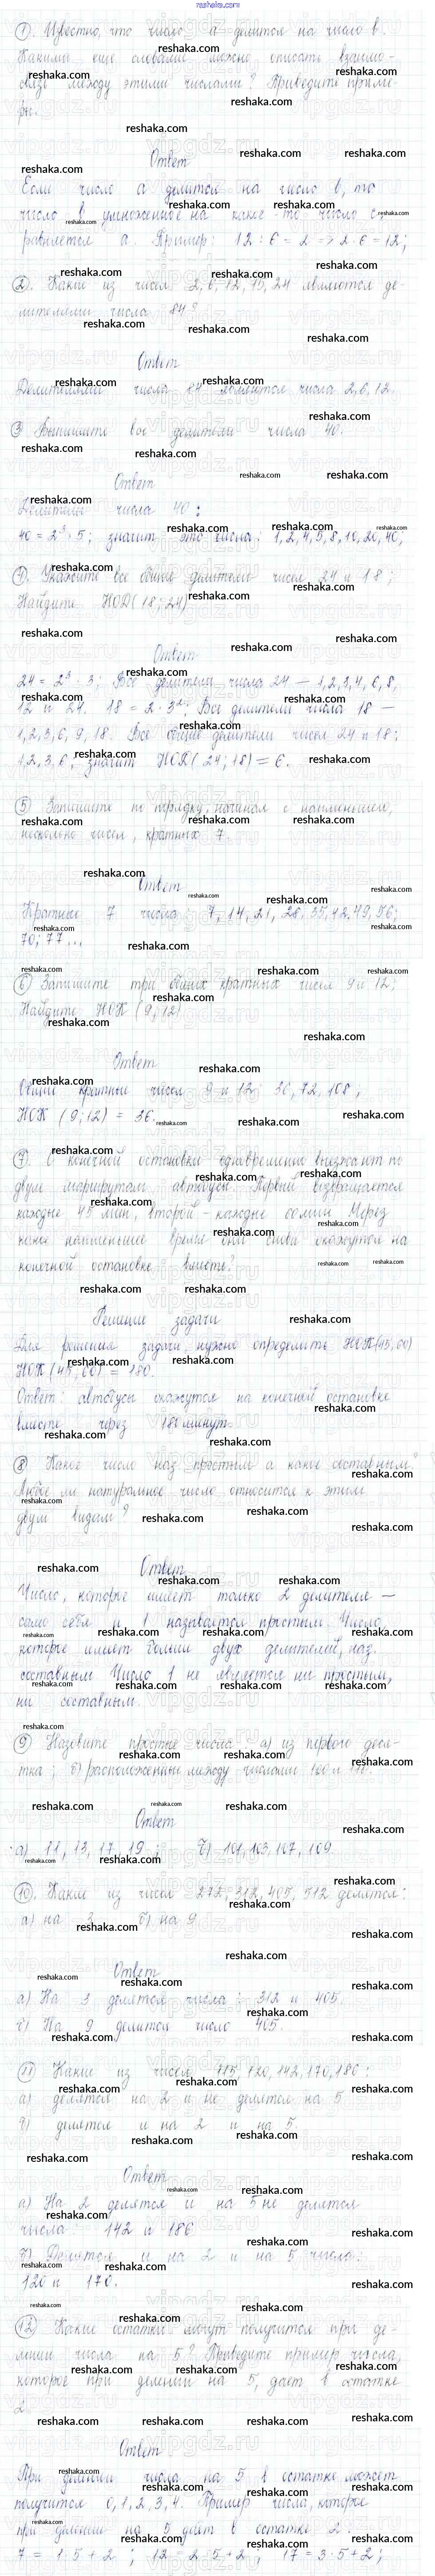 reshaka.com
1. Известно, что число a делится на число b.
Какими еще словами можно описать взаимо-
связь между этими числами? Приведите приме-
ры.
Ответ
Если число a делится на число b, то
число b умноженное на какое-то число c,
равняется a. Пример: 12 : 6 = 2 => 2 · 6 = 12;
2. Какие из чисел 2, 6, 12, 15, 24 являются де-
лителями числа 84?
Ответ
Делителями числа 84 являются числа 2, 6, 12.
3 Выпишите все делители числа 40.
Ответ
Делители числа 40:
40 = 2³ · 5; значит это числа: 1, 2, 4, 5, 8, 10, 20, 40;
Укажите все общие делители чисел 24 и 18;
Найдите НОД (18; 24)
Ответ
24 = 2³ · 3; Все делители числа 24 — 1, 2, 3, 4, 6, 8,
12 и 24. 18 = 2 · 3². Все делители числа 18 —
1, 2, 3, 6, 9, 18. Все общие делители чисел 24 и 18:
1, 2, 3, 6, значит НОД (24; 18) = 6.
5 Запишите по порядку, начиная с наименьшего,
несколько чисел, кратных 7.
Ответ
Кратные 7 числа: 7, 14, 21, 28, 35, 42, 49, 56;
70; 77...
6 Запишите три общих кратных чисел 9 и 12;
Найдите НОК (9; 12)
Ответ
Общие кратные чисел 9 и 12: 36, 72, 108,
НОК (9; 12) = 36.
7. С конечной остановки одновременно выезжают по
двум маршрутам автобусы. Первый возвращается
каждые 45 мин, второй - каждые 60 мин. Через
какое наименьшее время они снова окажутся на
конечной остановке вместе?
Решение задачи
Для решения задачи нужно определить НОК(45, 60)
НОК (45, 60) = 180.
Ответ: автобусы окажутся на конечной остановке
вместе через 180 минут.
8 Какое число наз. простым а какое составным?
Любое ли натуральное число относится к этим
двум видам?
Ответ
Число, которое имеет только 2 делителя —
само себя и 1 называется простым. Число,
которое имеет больше двух делителей, наз.
составным. Число 1 не является ни простым,
ни составным.
9 Назовите простые числа: а) из первого деся-
тка; б) расположенные между числами 100 и 110.
Ответ
а) 11, 13, 17, 19; б) 101, 103, 107, 109
10. Какие из чисел 272, 312, 405, 512 делятся:
а) на 3 б) на 9
Ответ
а) На 3 делятся числа: 312 и 405.
б) На 9 делится число 405.
11 Какие из чисел 115, 120, 142, 170, 186:
а) делятся на 2 и не делятся на 5
б) делятся и на 2 и на 5.
Ответ
а) На 2 делятся и на 5 не делятся
числа: 142 и 186
б) Делятся и на 2 и на 5 числа:
120 и 170.
12 Какие остатки могут получится при де-
лении числа на 5? Приведите пример числа,
которое при делении на 5, дает в остатке
2.
Ответ
При делении числа на 5 в остатке может
получится 0, 1, 2, 3, 4. Пример числа, которые
при делении на 5 дает в остатке 2:
7 = 1 · 5 + 2; 12 = 2 · 5 + 2; 17 = 3 · 5 + 2;